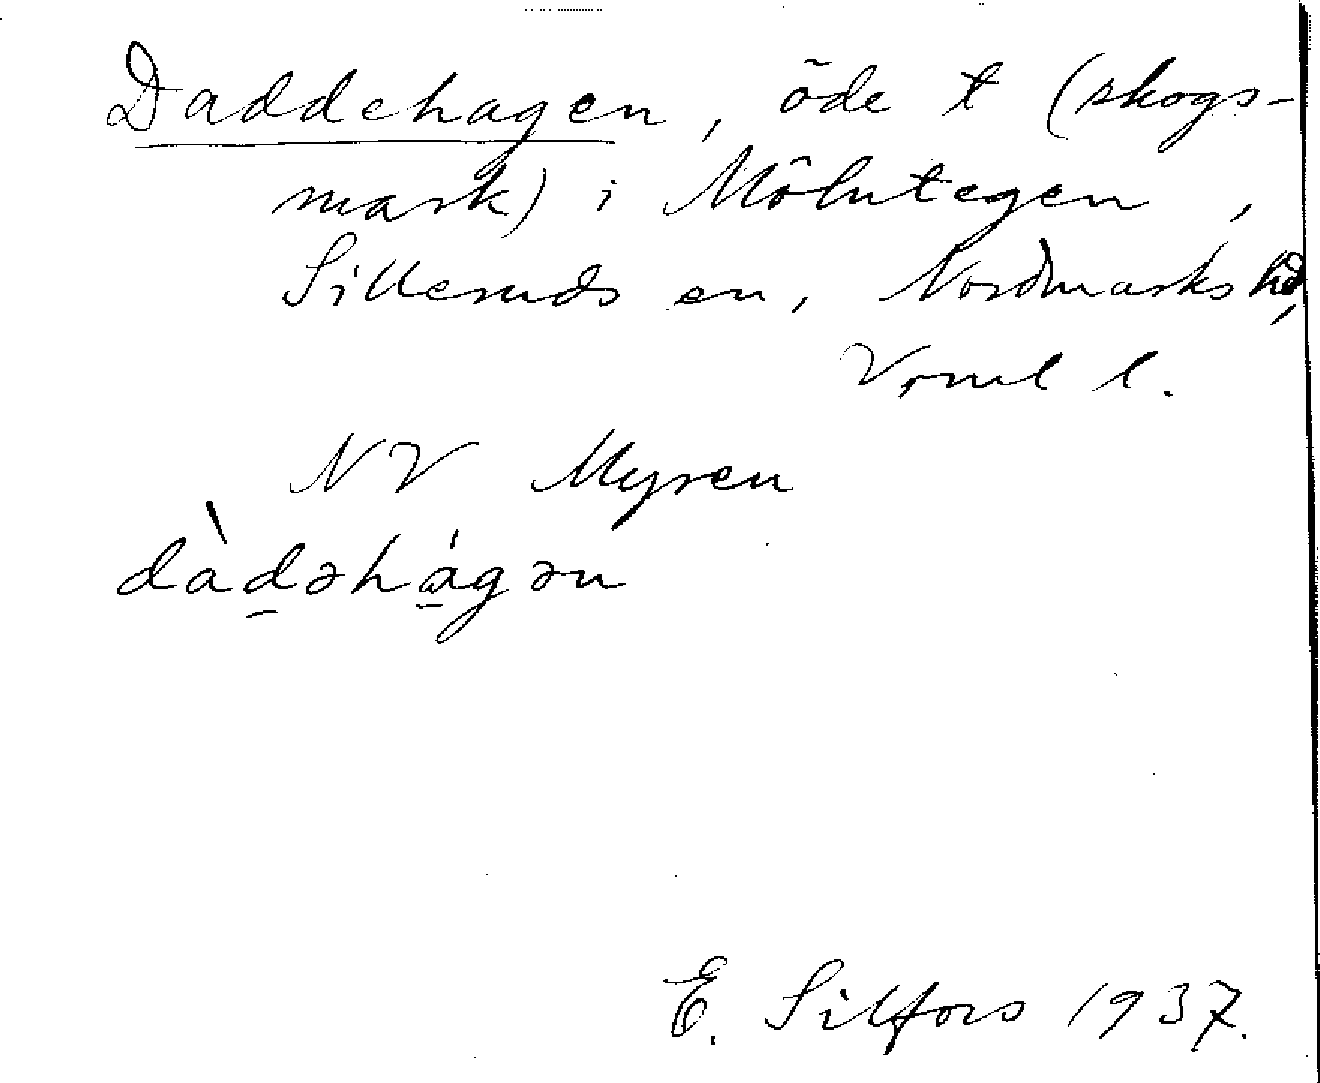 Daddehagen, öde t (skogs-
mark) i Mölntegen,
Silleruds sn, Nordmarks hd,
Vrml l.
NV Myren
dàd̠əhá̠gən
E. Silfors 1937.